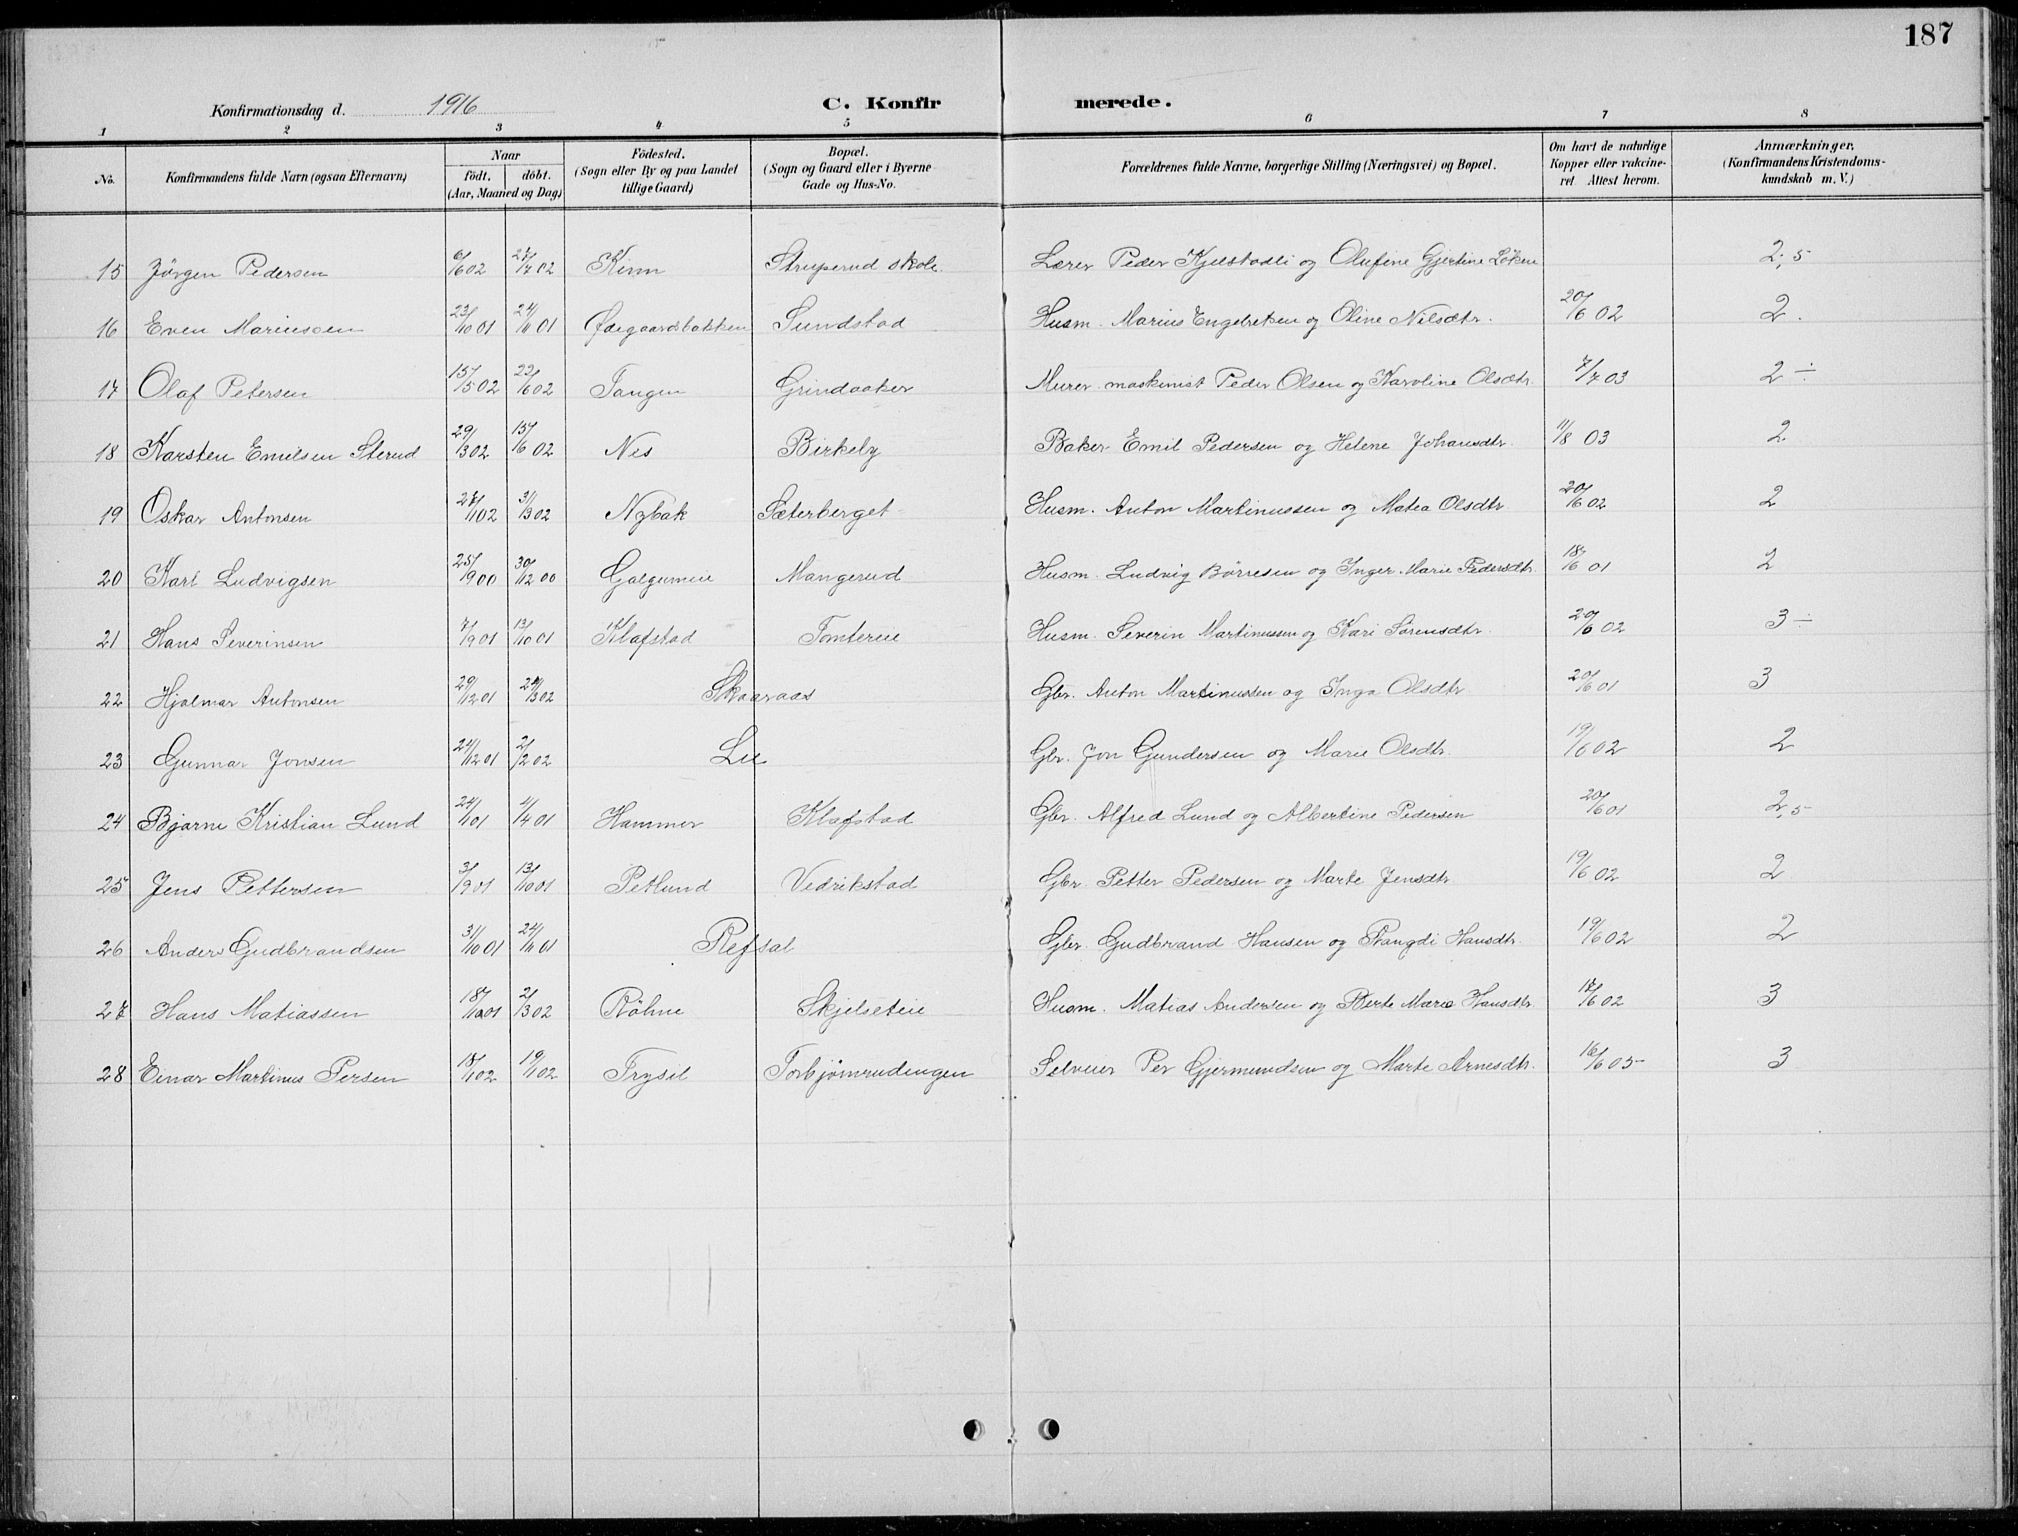 187
Konfirmationsdag d. 1916 C. Konfirmerede.
1 2 3 4 5 6 7 8
No. Konfirmandens fulde Navn (ogsaa Efternavn) Naar födt. döbt. (Aar, Maaned og Dag) Födested. (Sogn eller By og paa Landet tillige Gaard) Bopæl. (Sogn og Gaard eller i Byerne Gade og Hus-No. Forældrenes fulde Navne, borgerlige Stilling (Næringsvei) og Bopæl. Om havt de naturlige Kopper eller vakcineret. Attest herom. Anmærkninger, (Konfirmandens Kristendomskundskab m. V.)
15 Jörgen Pedersen 6/6 02 27/7 02 Kinn Struperud skole. Lærer Peder Kjelstadli og Olufine Gjertine Löken 2,5
16 Even Mariussen 23/10 01 24/11 01 Ødegaardsbakken Sundstad Husm. Marius Engebretsen og Oline Nilsdtr. 20/6 02 2.
17 Olaf Petersen 15/5 02 22/6 02 Tangen Grindaaker Murer. maskinist Peder Olsen og Karoline Olsdtr. 7/7 03 2 ÷
18 Karsten Emilsen Sterud 29/3 02 15/6 02 Nes Birkeby Baker Emil Pedersen og Helene Johansdtr. 11/8 03 2
19 Oskar Antonsen 27/1 02 31/3 02 Nybak Sæterberget Husm. Anton Martinussen og Matea Olsdtr 20/6 02 2
20 Karl Ludvigsen 25/9 00 30/12 00 Galgumeie Mangerud Husm. Ludvig Börresen og Inger Marie Pedersdtr. 18/6 01 2
21 Hans Severinsen 7/9 01 13/10 01 Klafstad Tomterne Husm. Severin Martinussen og Kari Sörensdtr. 20/6 02 3 ÷
22 Hjalmar Antonsen 29/12 01 Skaaraas Gbr. Anton Martinussen og Inga Olsdtr 20/6 01 3
23 Gunnar Jonsen 24/12 01 2/2 02 Lie Gbr. Jon Gundersen og Marie Olsdtr. 19/6 02 2
24 Bjarne Kristian Lund 24/1 01 4/4 01 Hammer Klafstad Gbr. Alfred Lund og Albertine Pedersen 20/6 01 2,5
25 Jens Pettersen 3/9 01 13/10 01 Petlund Vedrikstad Gbr. Petter Pedersen og Marte Jensdtr 19/6 02 2
26 Anders Gudbrandsen 31/10 01 24/11 01 Refsal Gbr. Gudbrand Hansen og Rangdi Hansdtr. 19/6 02 2
27 Hans Matiassen 2/3 02 Röhne Skjelseteie Husm. Matias Andersen og Berte Marie Hansdtr. 17/6 02 3
28 Einar Martinus Persen 18/1 02 19/1 02 Trysil Torbjörnrudengen Selveier Per Gjermundsen og Marte Arnesdtr. 16/6 05 3